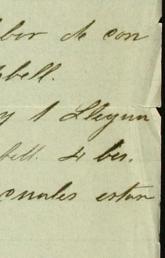 bor de con
bell.
y 1 Llegua
bell. 4 bs.
cuales estan